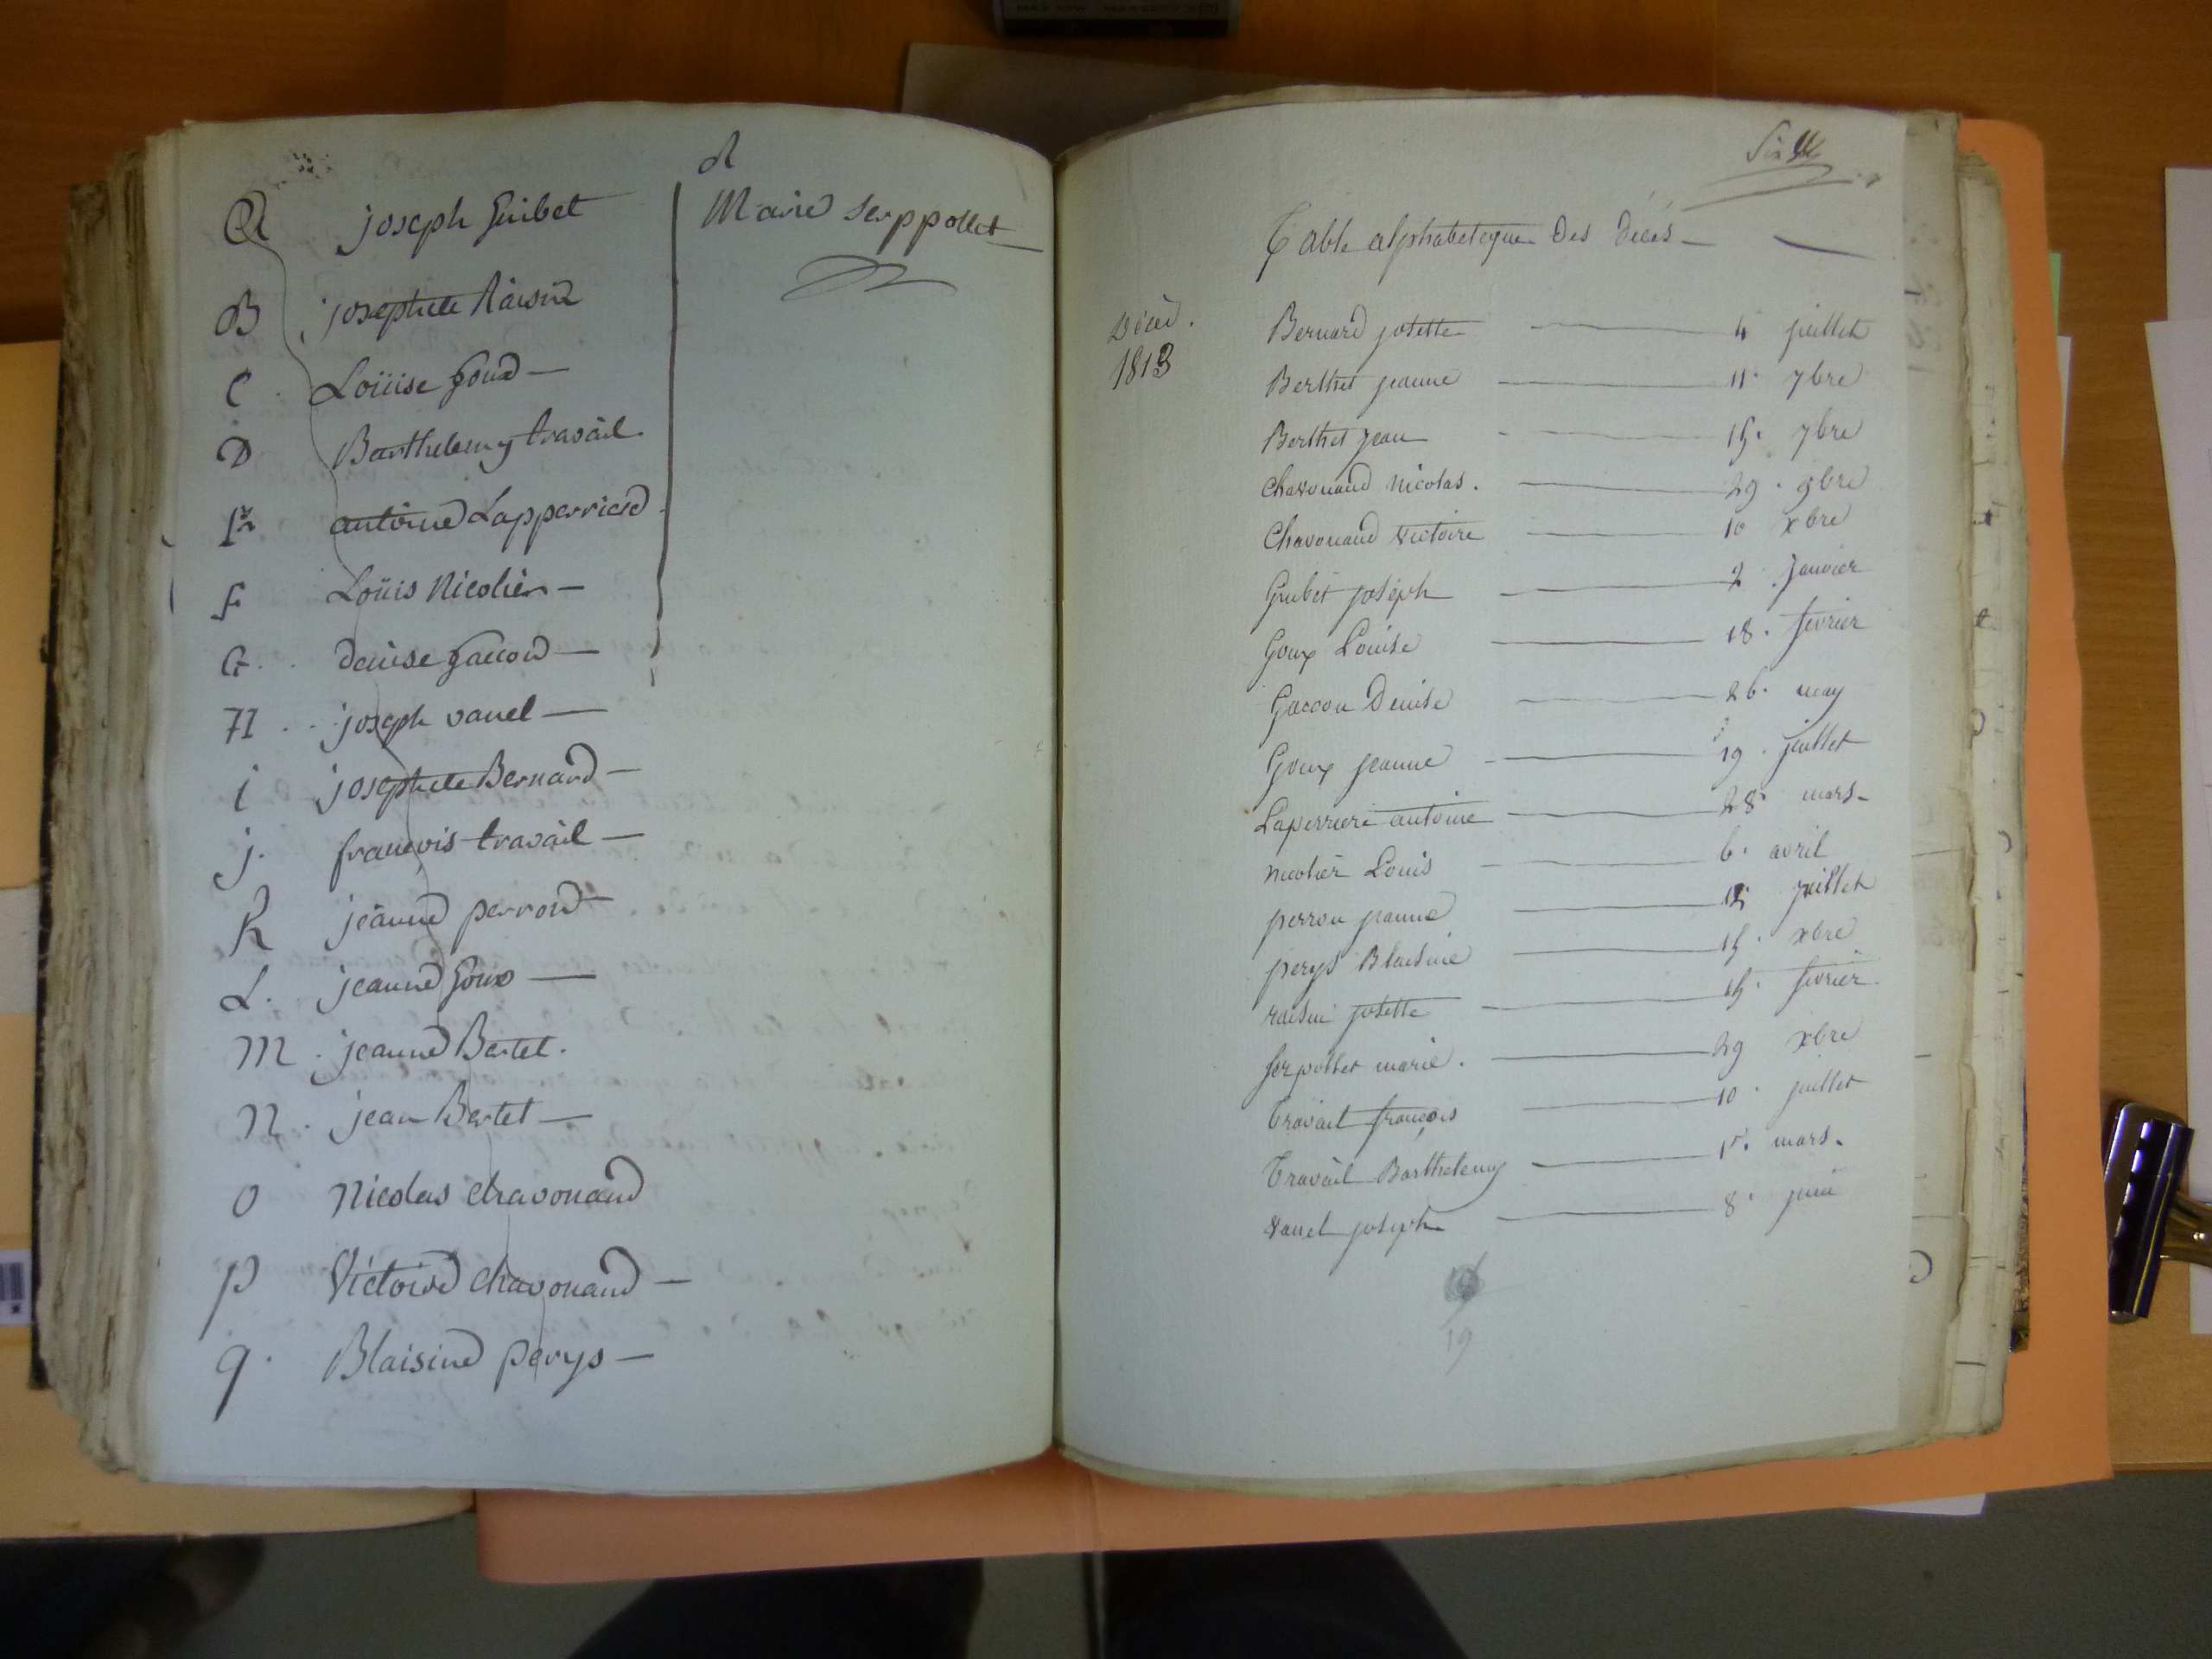 A joseph Guibet
B josephete Raisin
C Loüise Goux
D Barthelemy travail
E antoine Lapperriere
F Loüis Nicolier
G denise Gacon
H joseph vanel
i josephete Bernard
j. francois travail
K jeanne perron
L. jeanne Goux
M. jeanne Bertet.
N. jean Bertet
O Nicolas chavonand
P Victoire chavonand
q. Blaisine perys
R
Marie Serppollet
Six
Table alphabeteque des Décés
Décéd.
1813
Bernard josette 4 juillet
Berthet jeanne 11. 7bre
Berthet jean 15. 7bre
Chavonand Nicolas. 29. 9bre
Chavonand Victoire 10 xbre
Guibet joseph 2 janvier
Goux Louise 18. fevrier
Gaccon Denise 26. may
Goux jeanne 19. juillet
Laperriere antoine 28 mars
Nicolier Louis 6. avril
perron jeanne 12 juillet
perys Blaisine 15. xbre
raisin josette 15. fevrier
Serpollet marie. 29 xbre
Travail françois 10. juillet
Travail Barthelemy 1r. mars.
Vanel joseph 8. juin
19